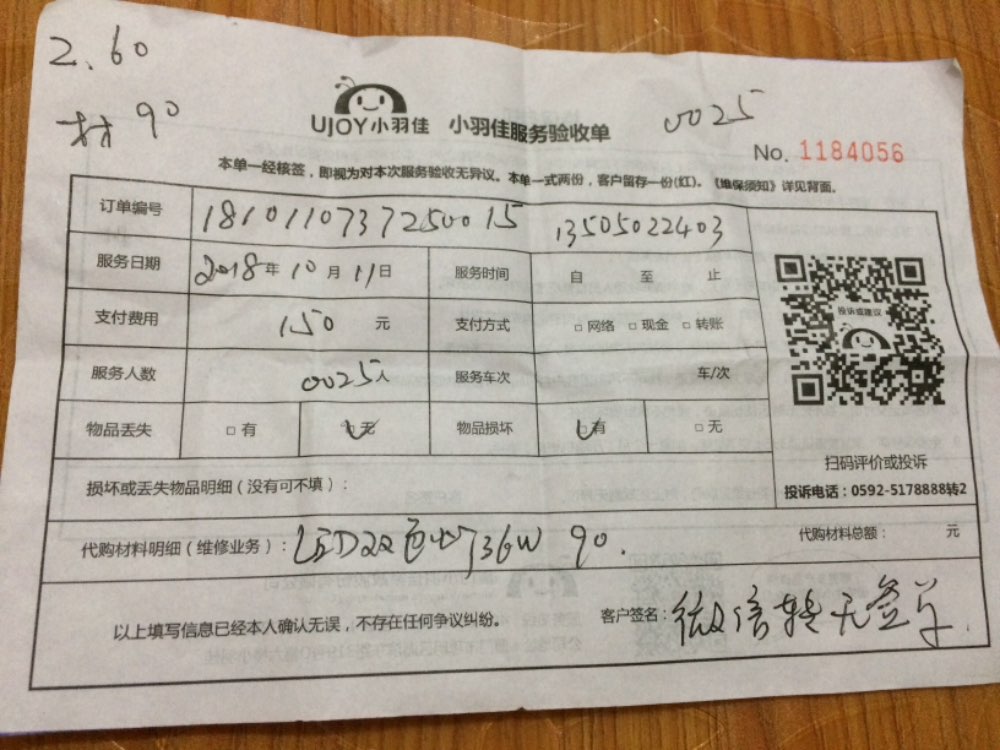 2、60
材 90
UJOY小羽佳 小羽佳服务验收单
0025
No. 1184056
本单一经核签，即视为对本次服务验收无异议。本单一式两份，客户留存一份(红)。《维保须知》详见背面。
订单编号 1810110737250015 13505022403
服务日期 2018年10月11日 服务时间 自 至 止
支付费用 150 元 支付方式 □网络 □现金 □转账
服务人数 0025人 服务车次 车/次
物品丢失 □有 □无 物品损坏 □有 □无
投诉或建议
扫码评价或投诉
投诉电话：0592-5178888转2
损坏或丢失物品明细（没有可不填）：
代购材料明细（维修业务）： LED双色 36W 90. 代购材料总额： 元
以上填写信息已经本人确认无误，不存在任何争议纠纷。 客户签名： 微信转无签单